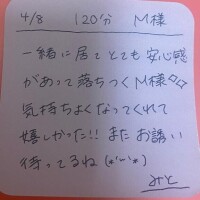 4/8 120分 M様
一緒に居てとても安心感
があって落ちつくM様◇◇
気持ちよくなってくれて
嬉しかった!! またお誘い
待ってるね(*'ー'*)
みと